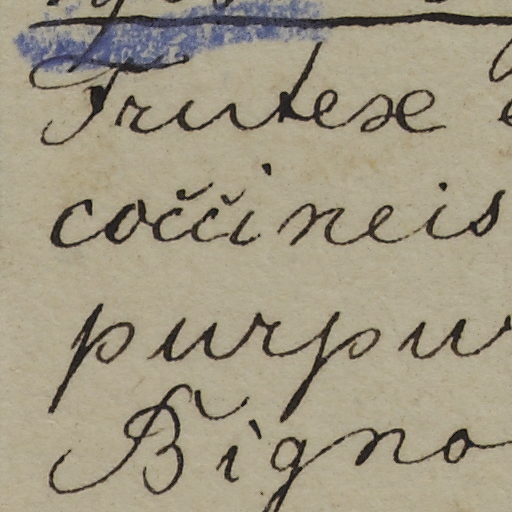 Frutex
coččineis
purpu
Bigno